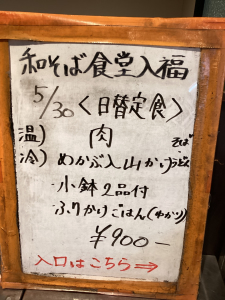 和そば食堂入福
5/30 <日替定食>
温) 肉
冷) めかぶ入山かけ そば うどん
・小鉢2品付
・ふりかけごはん(ゆかり)
¥900-
入口はこちら⇒